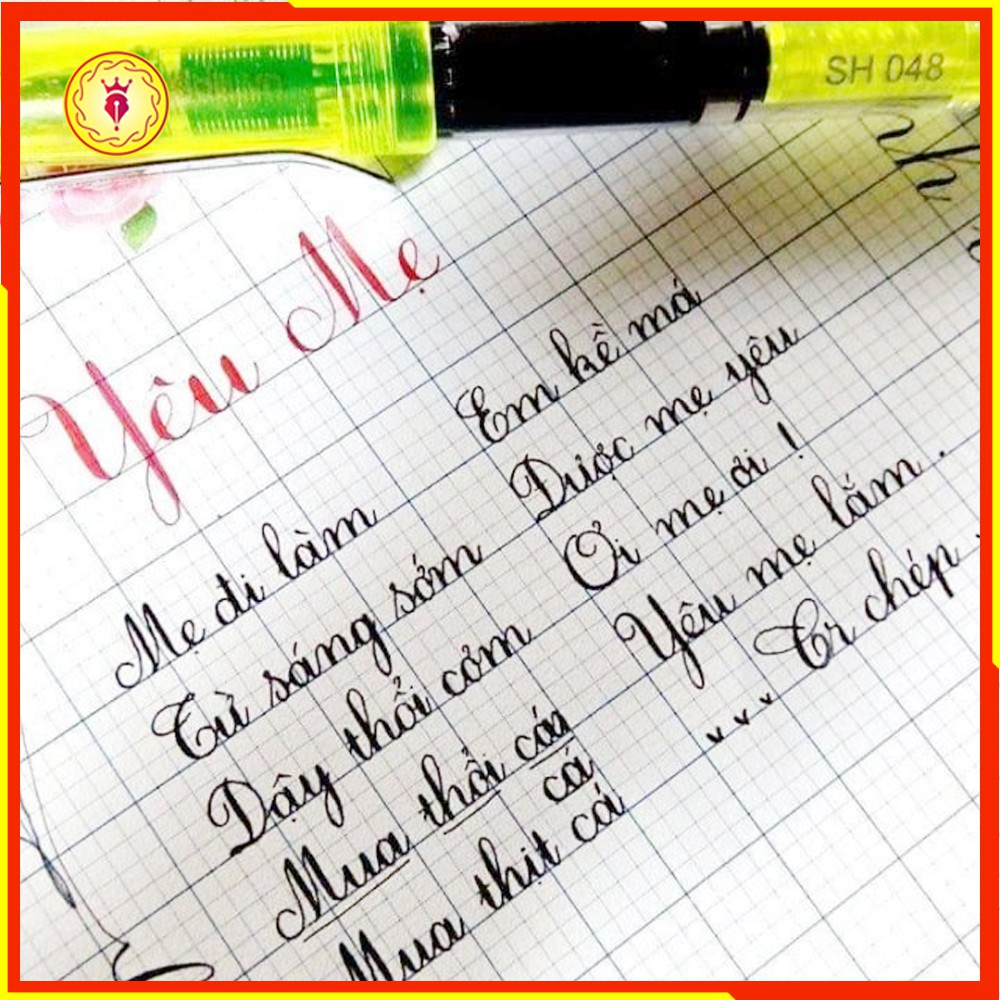 SH 048
Yêu Mẹ
Mẹ đi làm
Từ sáng sớm
Dậy thổi cơm
Mua thổi cá
cá
Mua thịt cá
Em kề má
Dược mẹ yêu
Ơi mẹ ơi !
Yêu mẹ lắm .
Tr chép .